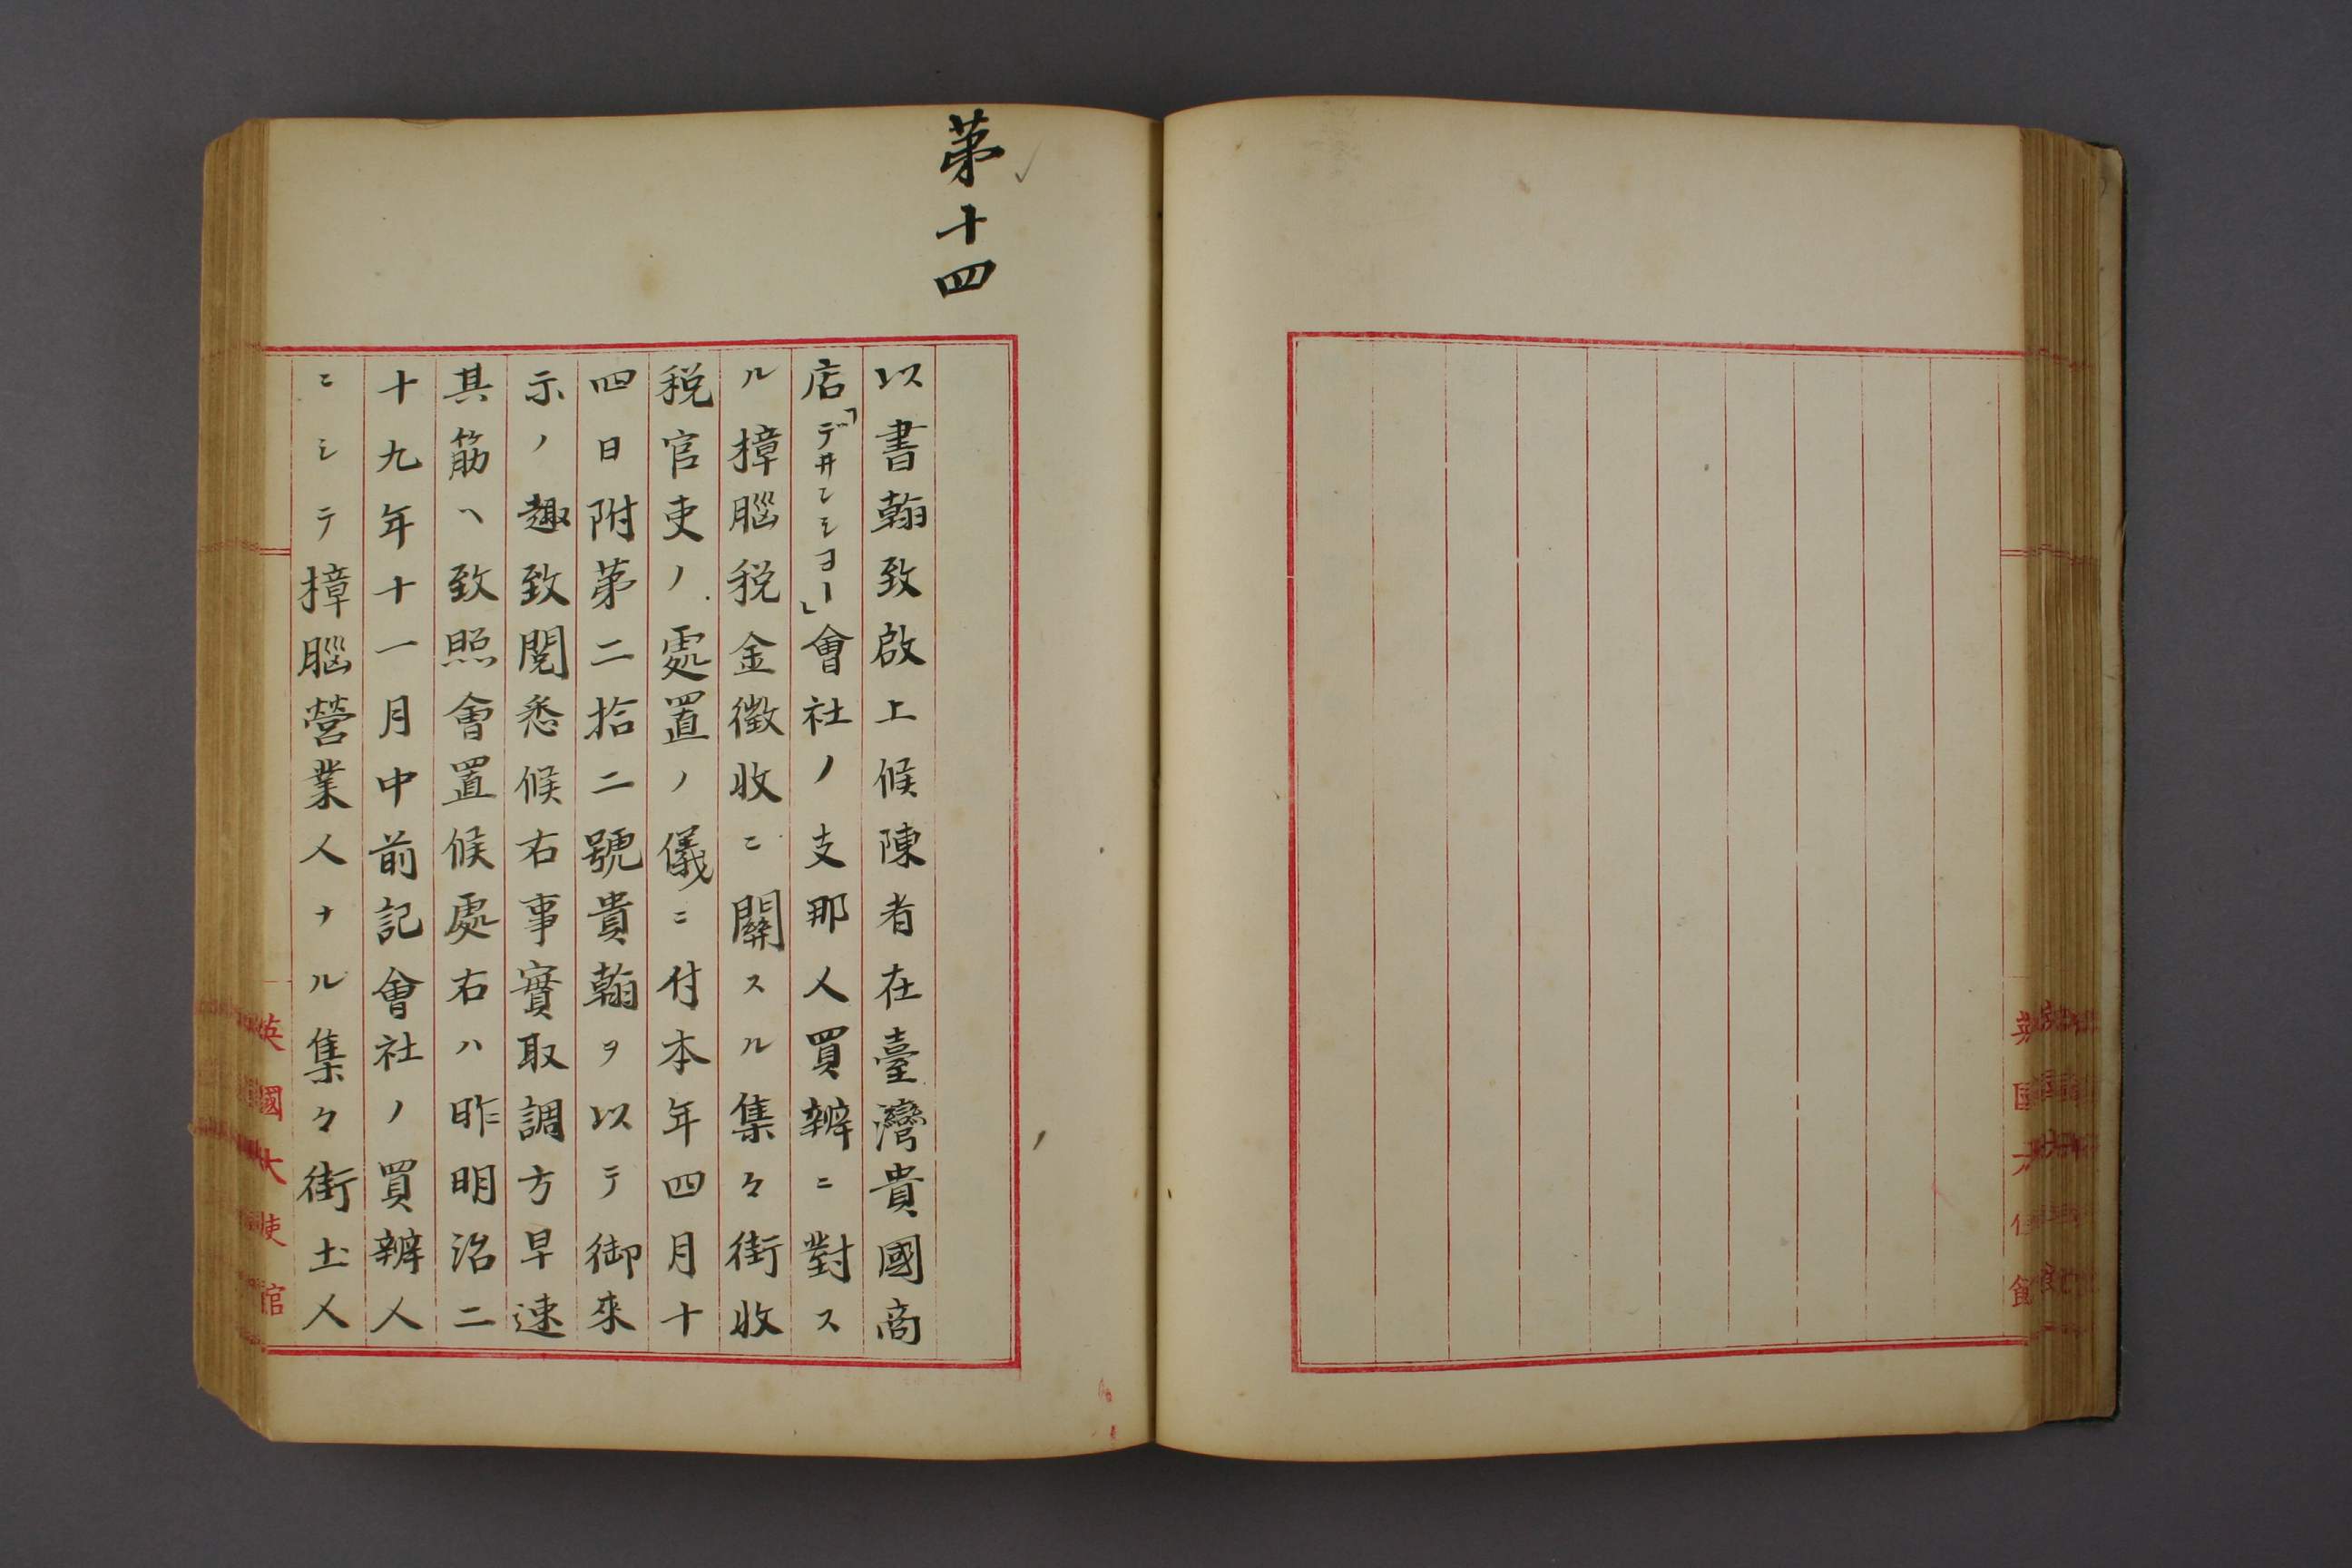 第十四
以書翰致啟上候陳者在臺灣貴國商
店「デ井ンシヨー」會社ノ支那人買辨ニ對ス
ル樟腦税金徴收ニ關スル集々街收
税官吏ノ處置ノ儀ニ付本年四月十
四日附第二拾二號貴翰ヲ以テ御來
示ノ趣致閲悉候右事實取調方早速
其筋ヘ致照會置候處右ハ昨明治二
十九年十一月中前記會社ノ買辨人
ニシテ樟腦營業人ナル集々街土人
英國大使館